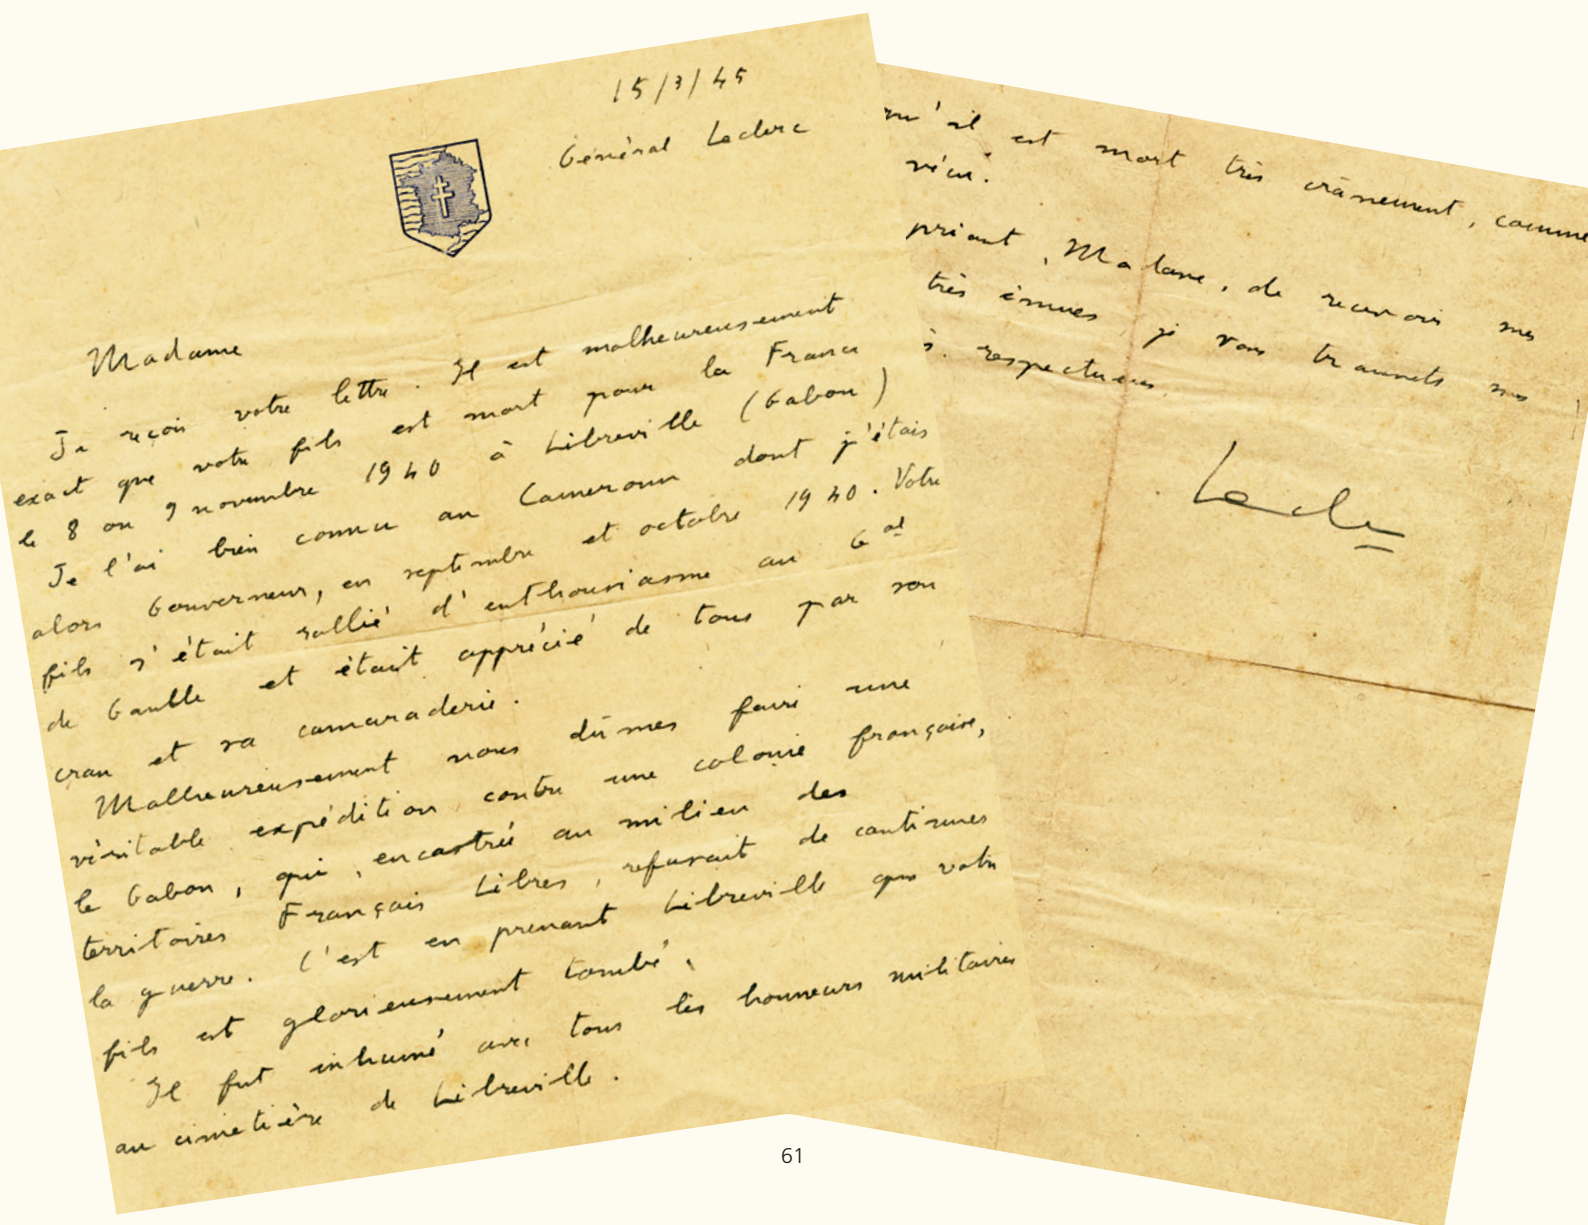 15/3/45
Général Leclerc
Madame
Je reçois votre lettre. Il est malheureusement
exact que votre fils est mort pour la France
le 8 ou 9 novembre 1940 à Libreville (Gabon)
Je l'ai bien connu au Cameroun dont j'étais
alors Gouverneur, en septembre et octobre 1940. Votre
fils s'était rallié d'enthousiasme au Gal
de Gaulle et était apprécié de tous par son
cran et sa camaraderie.
Malheureusement nous dûmes faire une
véritable expédition contre une colonie française,
le Gabon, qui, encastrée au milieu des
territoires Français Libres, refusait de continuer
la guerre. C'est en prenant Libreville que votre
fils est glorieusement tombé.
Il fut inhumé avec tous les honneurs militaires
au cimetière de Libreville.
qu'il est mort très crânement, comme
vécu.
priant, Madame, de recevoir mes
très émues je vous transmets mes
s respectueux.
Leclerc
61